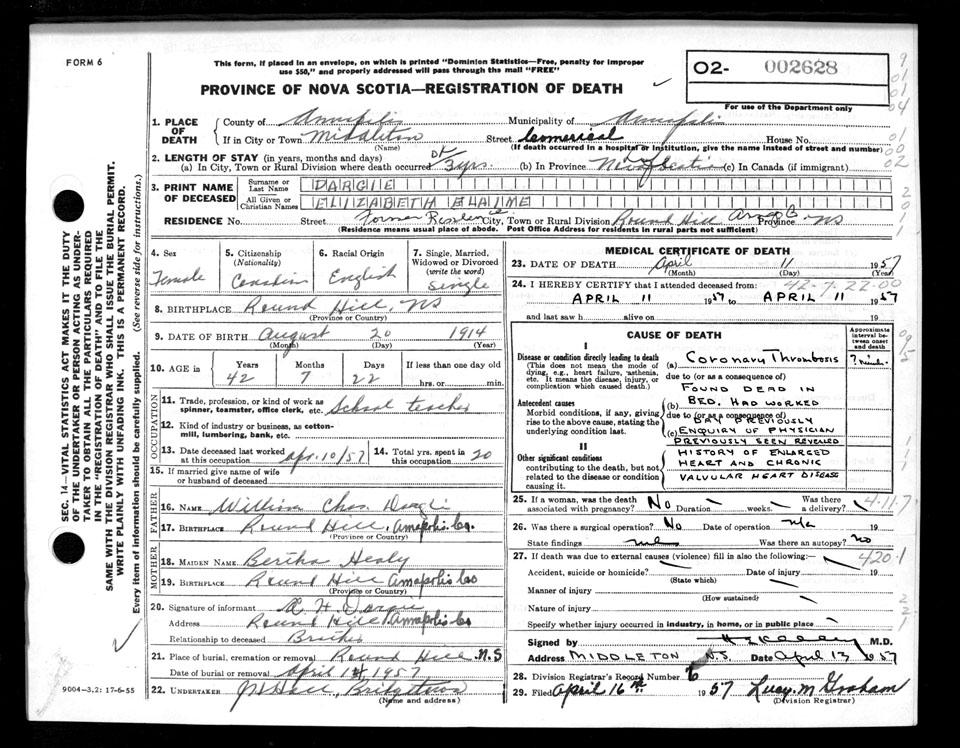 FORM 6
This form, if placed in an envelope, on which is printed "Dominion Statistics—Free, penalty for improper
use $50," and properly addressed will pass through the mail "FREE"
O2- 002628
PROVINCE OF NOVA SCOTIA—REGISTRATION OF DEATH
For use of the Department only
1. PLACE OF DEATH
County of Annapolis Municipality of Annapolis
If in City or Town Middleton Street Comerical House No.
(Name) (If death occurred in a hospital or institution, give the name instead of street and number)
2. LENGTH OF STAY (in years, months and days)
(a) In City, Town or Rural Division where death occurred 3 yrs. (b) In Province Life (c) In Canada (if immigrant)
3. PRINT NAME OF DECEASED
Surname or Last Name DARGIE
All Given or Christian Names ELIZABETH ELAINE
RESIDENCE No. Street Former Residence City, Town or Rural Division Round Hill Province NS
(Residence means usual place of abode. Post Office Address for residents in rural parts not sufficient)
4. Sex
Female
5. Citizenship (Nationality)
Canadian
6. Racial Origin
English
7. Single, Married, Widowed or Divorced (write the word)
Single
8. BIRTHPLACE Round Hill, NS
(Province or Country)
9. DATE OF BIRTH August 20 1914
(Month) (Day) (Year)
10. AGE in
Years Months Days If less than one day old
42 7 22 hrs. or min.
OCCUPATION
11. Trade, profession, or kind of work as spinner, teamster, office clerk, etc. School teacher
12. Kind of industry or business, as cotton-mill, lumbering, bank, etc.
13. Date deceased last worked at this occupation Apr. 10/57
14. Total yrs. spent in this occupation 20
15. If married give name of wife or husband of deceased
FATHER
16. NAME William Chas. Dargie
17. BIRTHPLACE Round Hill, Annapolis Co.
(Province or Country)
MOTHER
18. MAIDEN NAME Bertha Healy
19. BIRTHPLACE Round Hill Annapolis Co
(Province or Country)
20. Signature of informant H. Dargie
Address Round Hill Annapolis Co
Relationship to deceased Brother
21. Place of burial, cremation or removal Round Hill N.S
Date of burial or removal April 1957
22. UNDERTAKER Bridgetown
(Name and address)
MEDICAL CERTIFICATE OF DEATH
23. DATE OF DEATH April 11 1957
(Month) (Day) (Year)
42-7-22-00
24. I HEREBY CERTIFY that I attended deceased from:
APRIL 11 1957 to APRIL 11 1957
and last saw h alive on 19
CAUSE OF DEATH
Approximate interval between onset and death
I
Disease or condition directly leading to death
(This does not mean the mode of dying, e.g., heart failure, asthenia, etc. It means the disease, injury, or complication which caused death.)
(a) Coronary Thrombosis ? min.
due to (or as a consequence of)
FOUND DEAD IN
Antecedent causes
Morbid conditions, if any, giving rise to the above cause, stating the underlying condition last.
(b) BED. HAD WORKED
due to (or as a consequence of)
DAY PREVIOUSLY
(c) ENQUIRY OF PHYSICIAN
PREVIOUSLY SEEN REVEALED
II
Other significant conditions
contributing to the death, but not related to the disease or condition causing it.
HISTORY OF ENLARGED
HEART AND CHRONIC
VALVULAR HEART DISEASE
25. If a woman, was the death associated with pregnancy? No Duration weeks. Was there a delivery?
4-11-7
26. Was there a surgical operation? No Date of operation n/a 19
State findings Was there an autopsy? no
27. If death was due to external causes (violence) fill in also the following: 420.1
Accident, suicide or homicide? Date of injury 19
(State which)
Manner of injury
(How sustained)
Nature of injury
Specify whether injury occurred in industry, in home, or in public place
Signed by M.D.
Address MIDDLETON N.S. Date April 13 1957
28. Division Registrar's Record Number 6
29. Filed April 16th 1957 Lucy M Graham
(Division Registrar)
SEC. 14—VITAL STATISTICS ACT MAKES IT THE DUTY
OF THE UNDERTAKER OR PERSON ACTING AS UNDER-
TAKER TO OBTAIN ALL THE PARTICULARS REQUIRED
IN THE "REGISTRATION OF DEATH" AND TO FILE THE
SAME WITH THE DIVISION REGISTRAR WHO SHALL ISSUE THE BURIAL PERMIT.
WRITE PLAINLY WITH UNFADING INK. THIS IS A PERMANENT RECORD.
Every item of information should be carefully supplied. (See reverse side for instructions.)
9004—3.2: 17-6-55